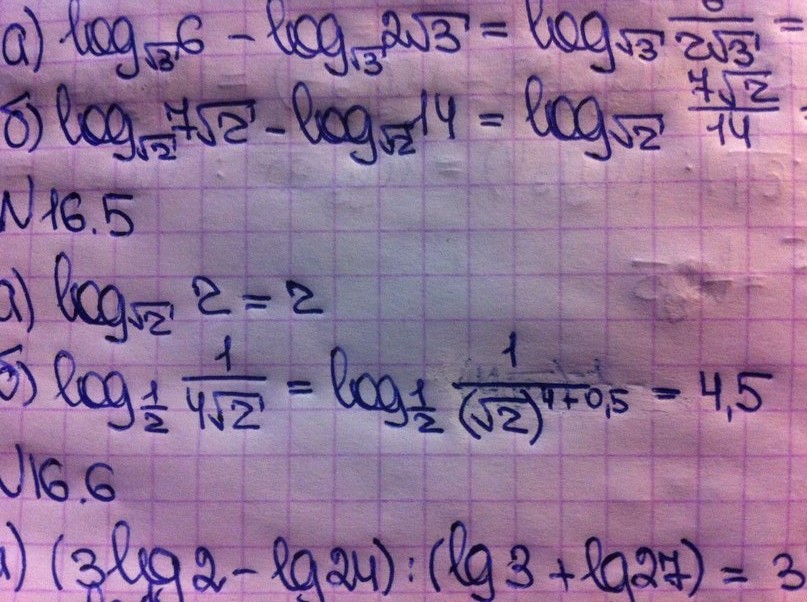 а) log_√3 6 - log_√3 2√3 = log_√3 6/(2√3) =
б) log_√2 7√2 - log_√2 14 = log_√2 (7√2)/14
N 16.5
а) log_√2 2 = 2
б) log_1/2 1/(4√2) = log_1/2 1/(√2)^(4+0,5) = 4,5
N 16.6
а) (3 lg 2 - lg 24) : (lg 3 + lg 27) = 3